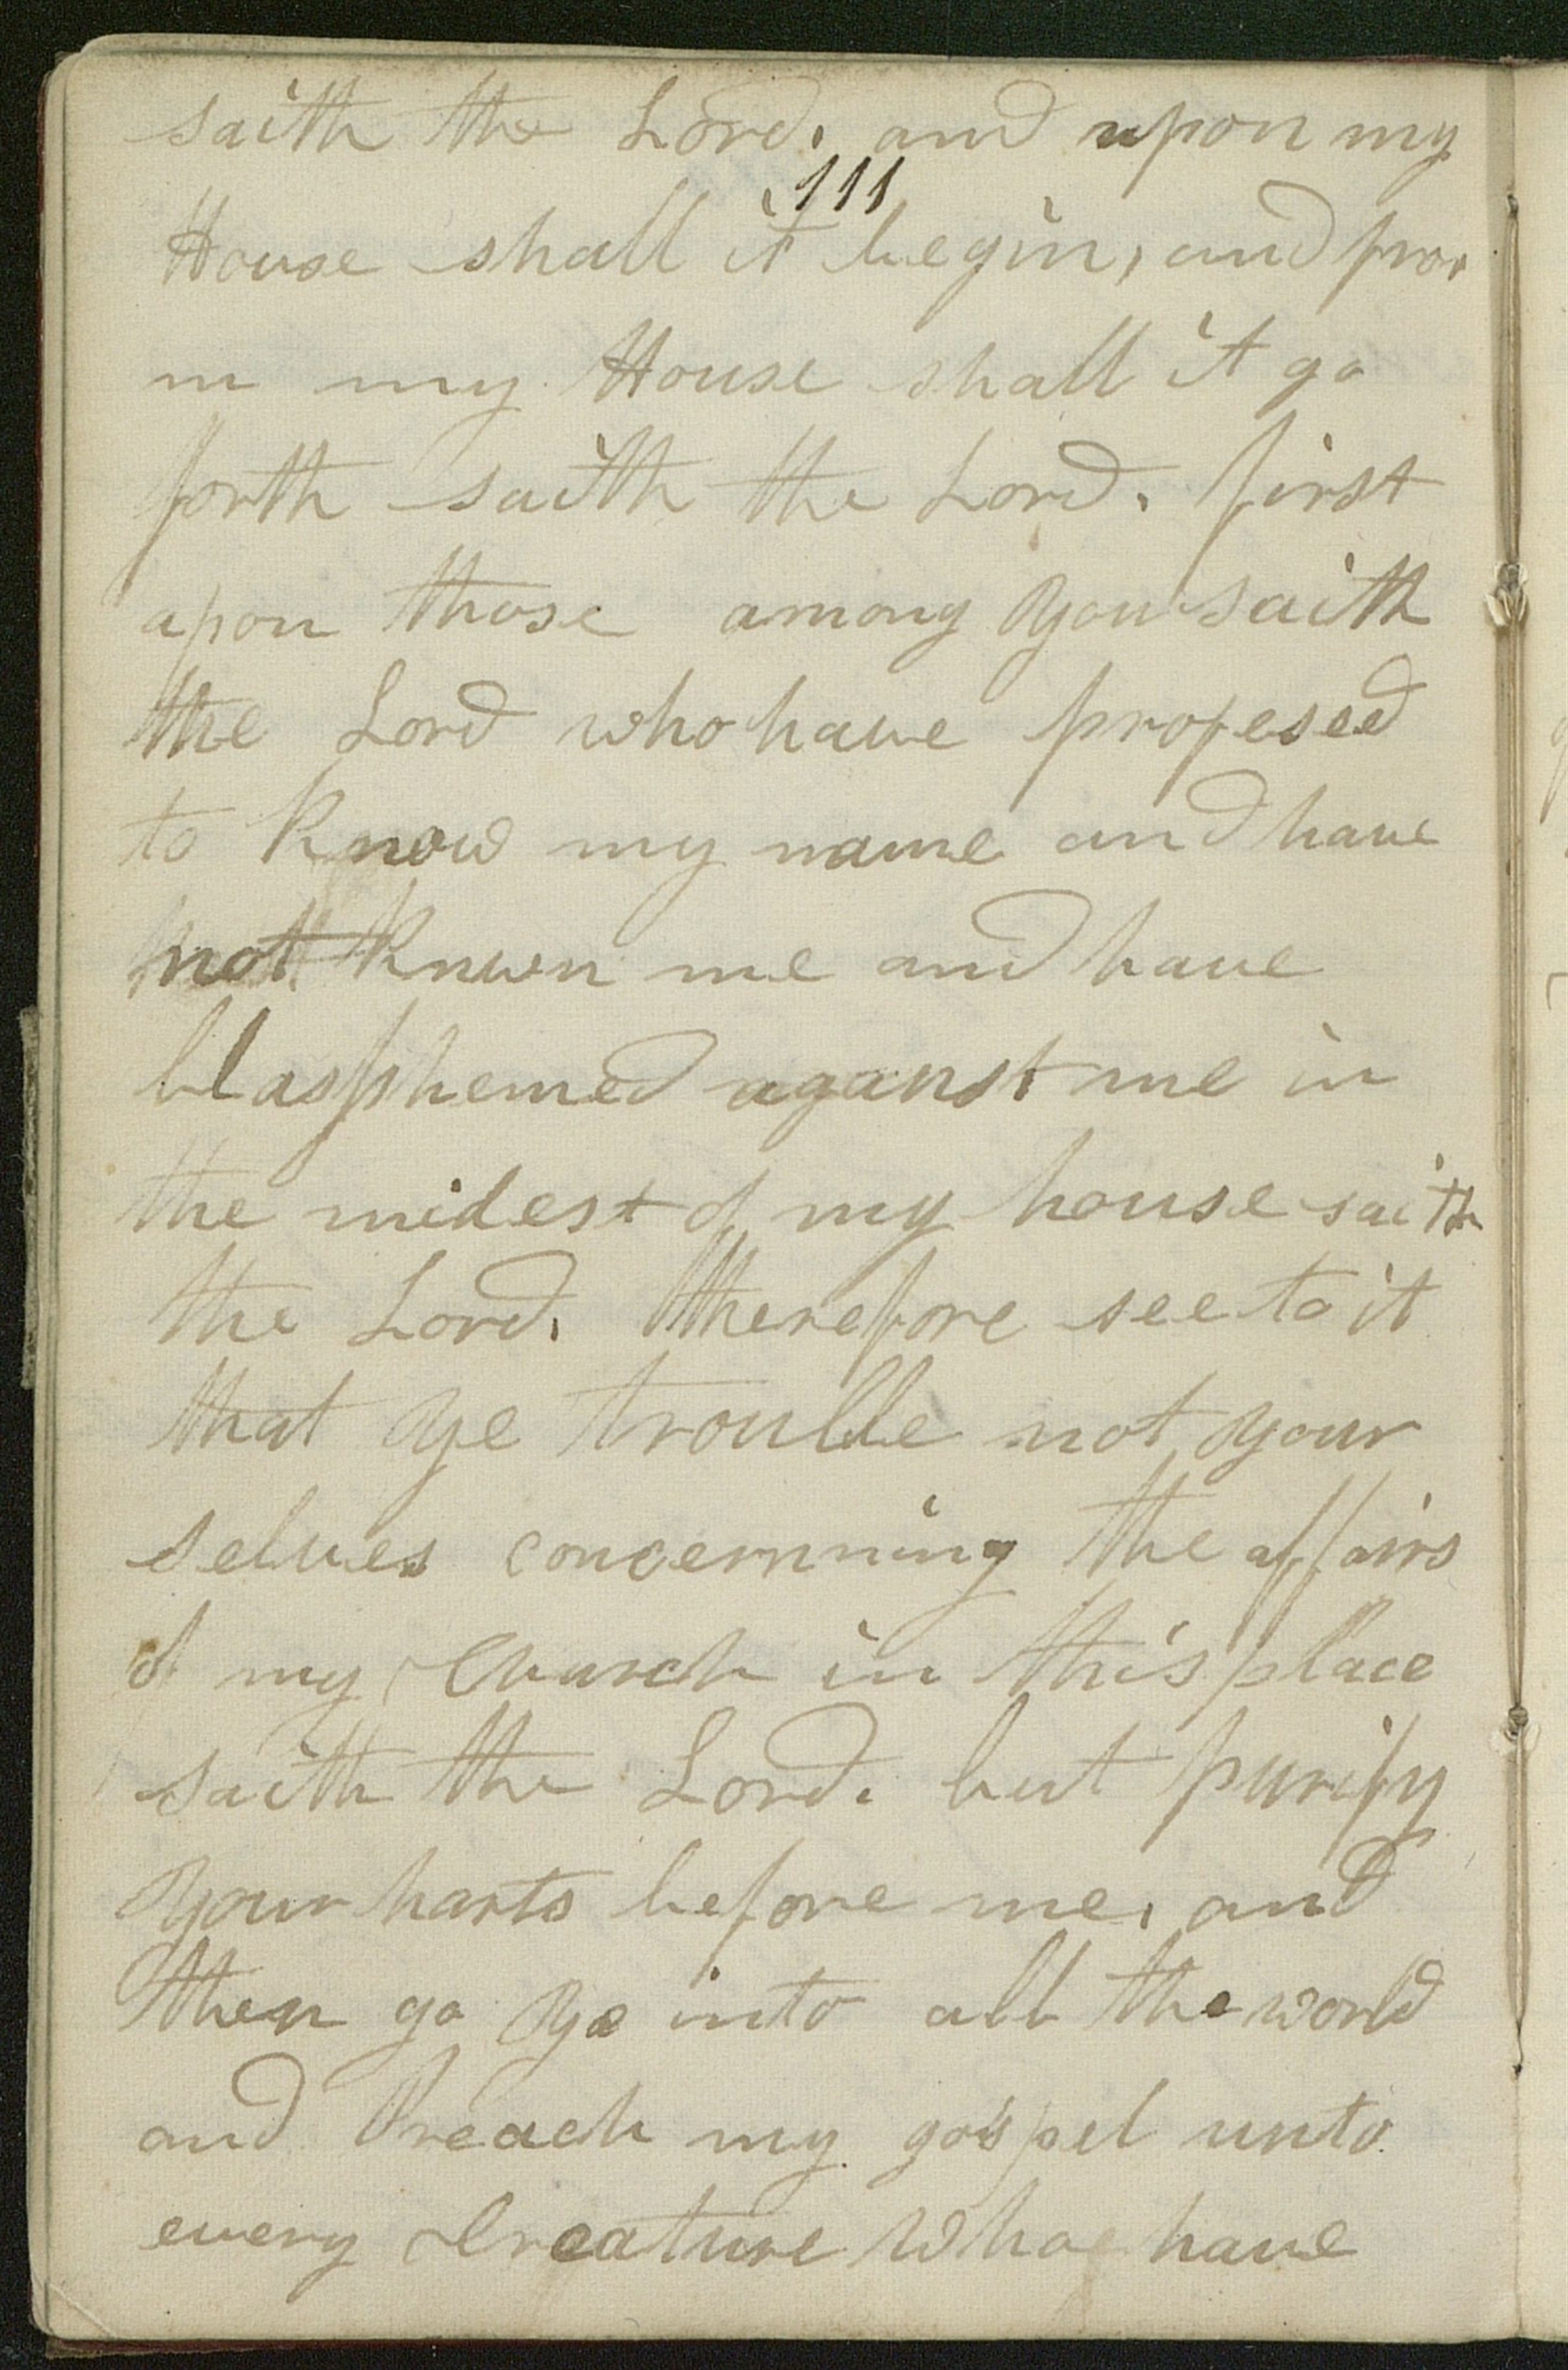 saith the Lord. and upon my
111
House shall it begin, and fro-
m my House shall it go
forth saith the Lord. first
apon those among you saith
the Lord who have profesed
to know my name and have
not knwn me and have
blasphemed aganst me in
the midest of my house saith
the Lord. therefore see to it
that ye trouble not your
selves concernning the affairs
of my Church in this place
saith the Lord. but purify
your harts before me, and
then go ye into all the world
and Preach my gospel unto
every Creature who have